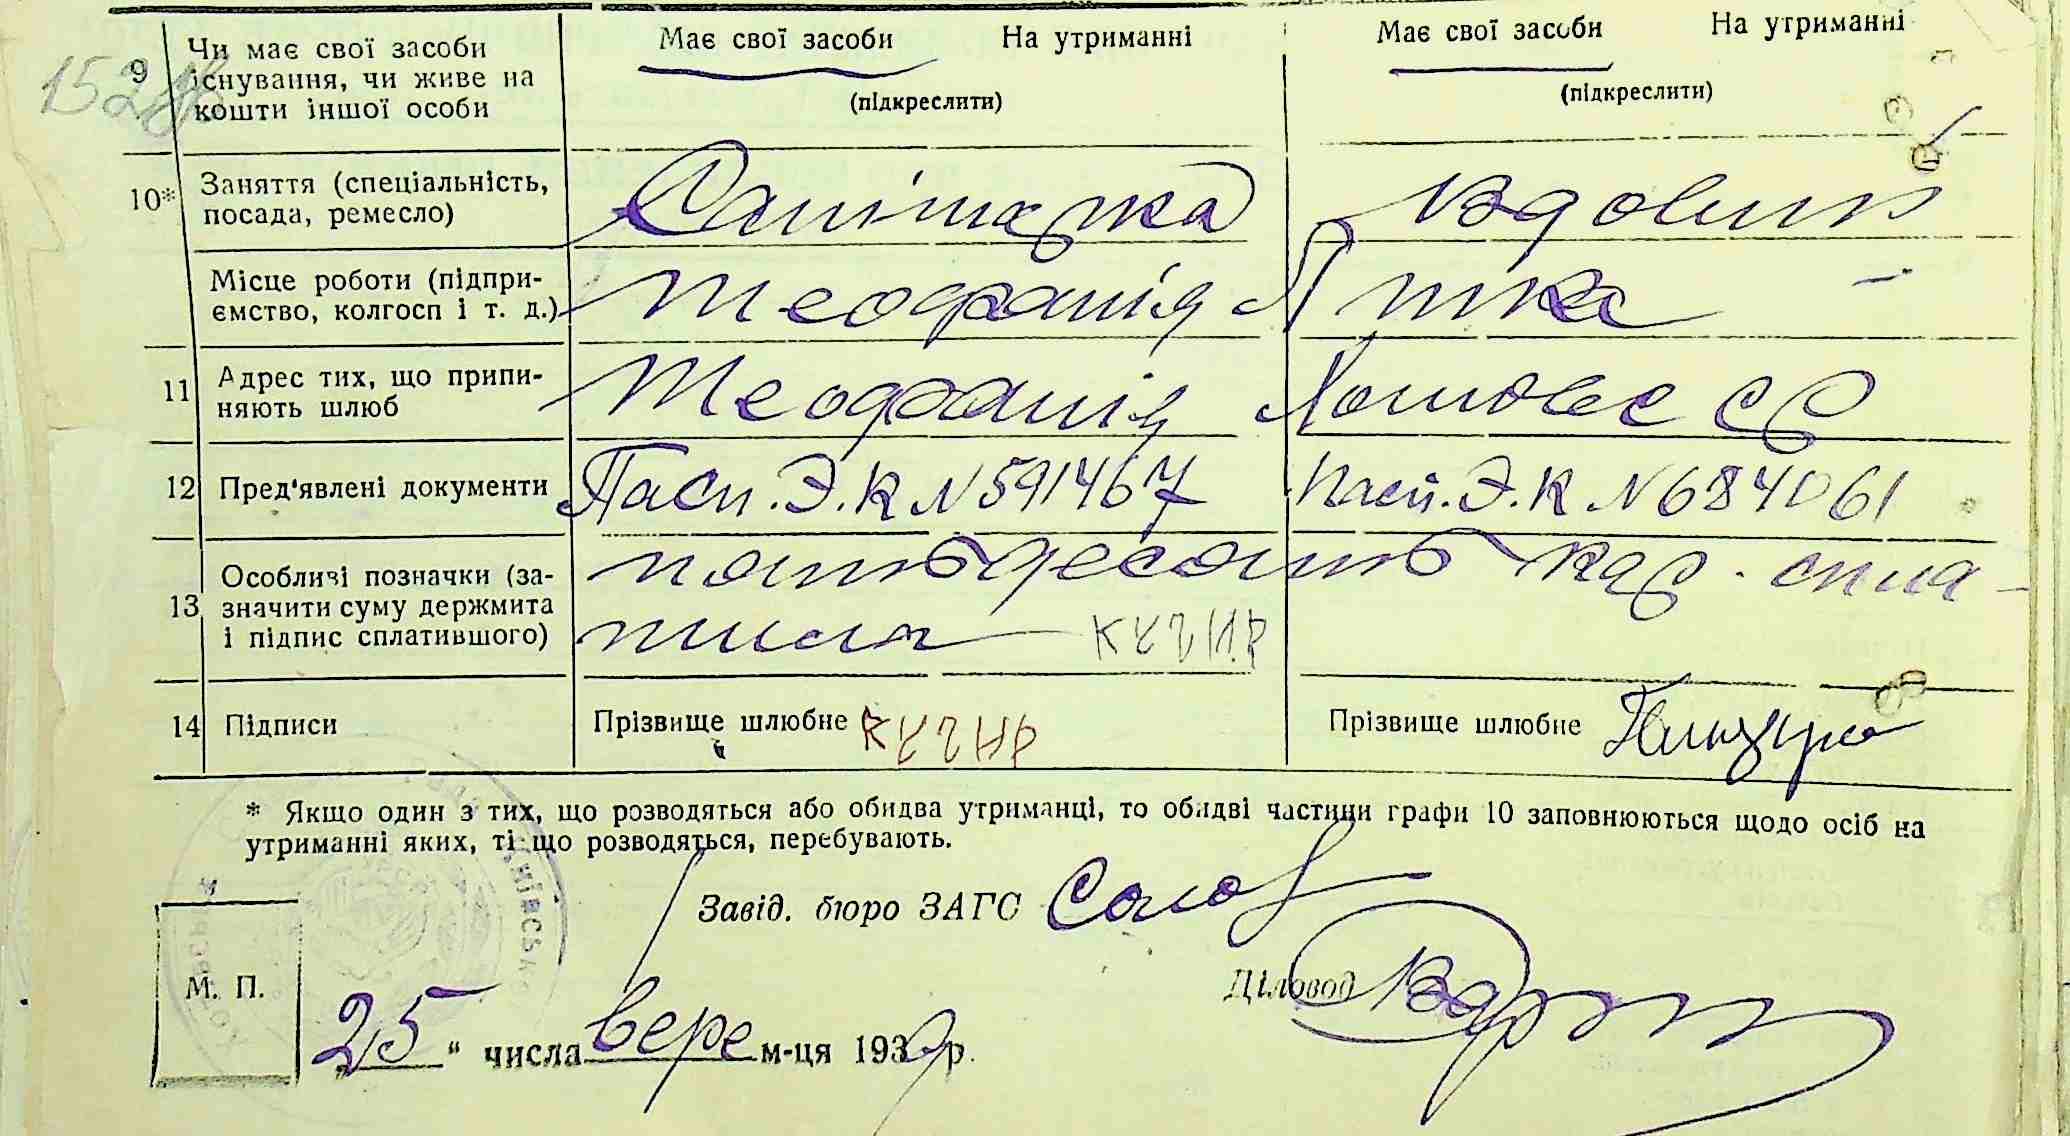 9 Чи має свої засоби існування, чи живе на кошти іншої особи
Має свої засоби На утриманні
(підкреслити)
Має свої засоби На утриманні
(підкреслити)
10* Заняття (спеціальність, посада, ремесло)
Санітарка
Місце роботи (підприємство, колгосп і т. д.)
Теофанія
11 Адрес тих, що припиняють шлюб
Теофанія
12 Пред'явлені документи
Пасп. Э.К N 591467
Пасп. Э.К N 684061
13 Особливі позначки (зазначити суму держмита і підпис сплатившого)
пятьдесять кар. спла-
тила
14 Підписи
Прізвище шлюбне
Прізвище шлюбне
* Якщо один з тих, що розводяться або обидва утриманці, то обидві частини графи 10 заповнюються щодо осіб на
утриманні яких, ті що розводяться, перебувають.
Завід. бюро ЗАГС
Діловод
М. П.
„25“ числа вере м-ця 1939 р.